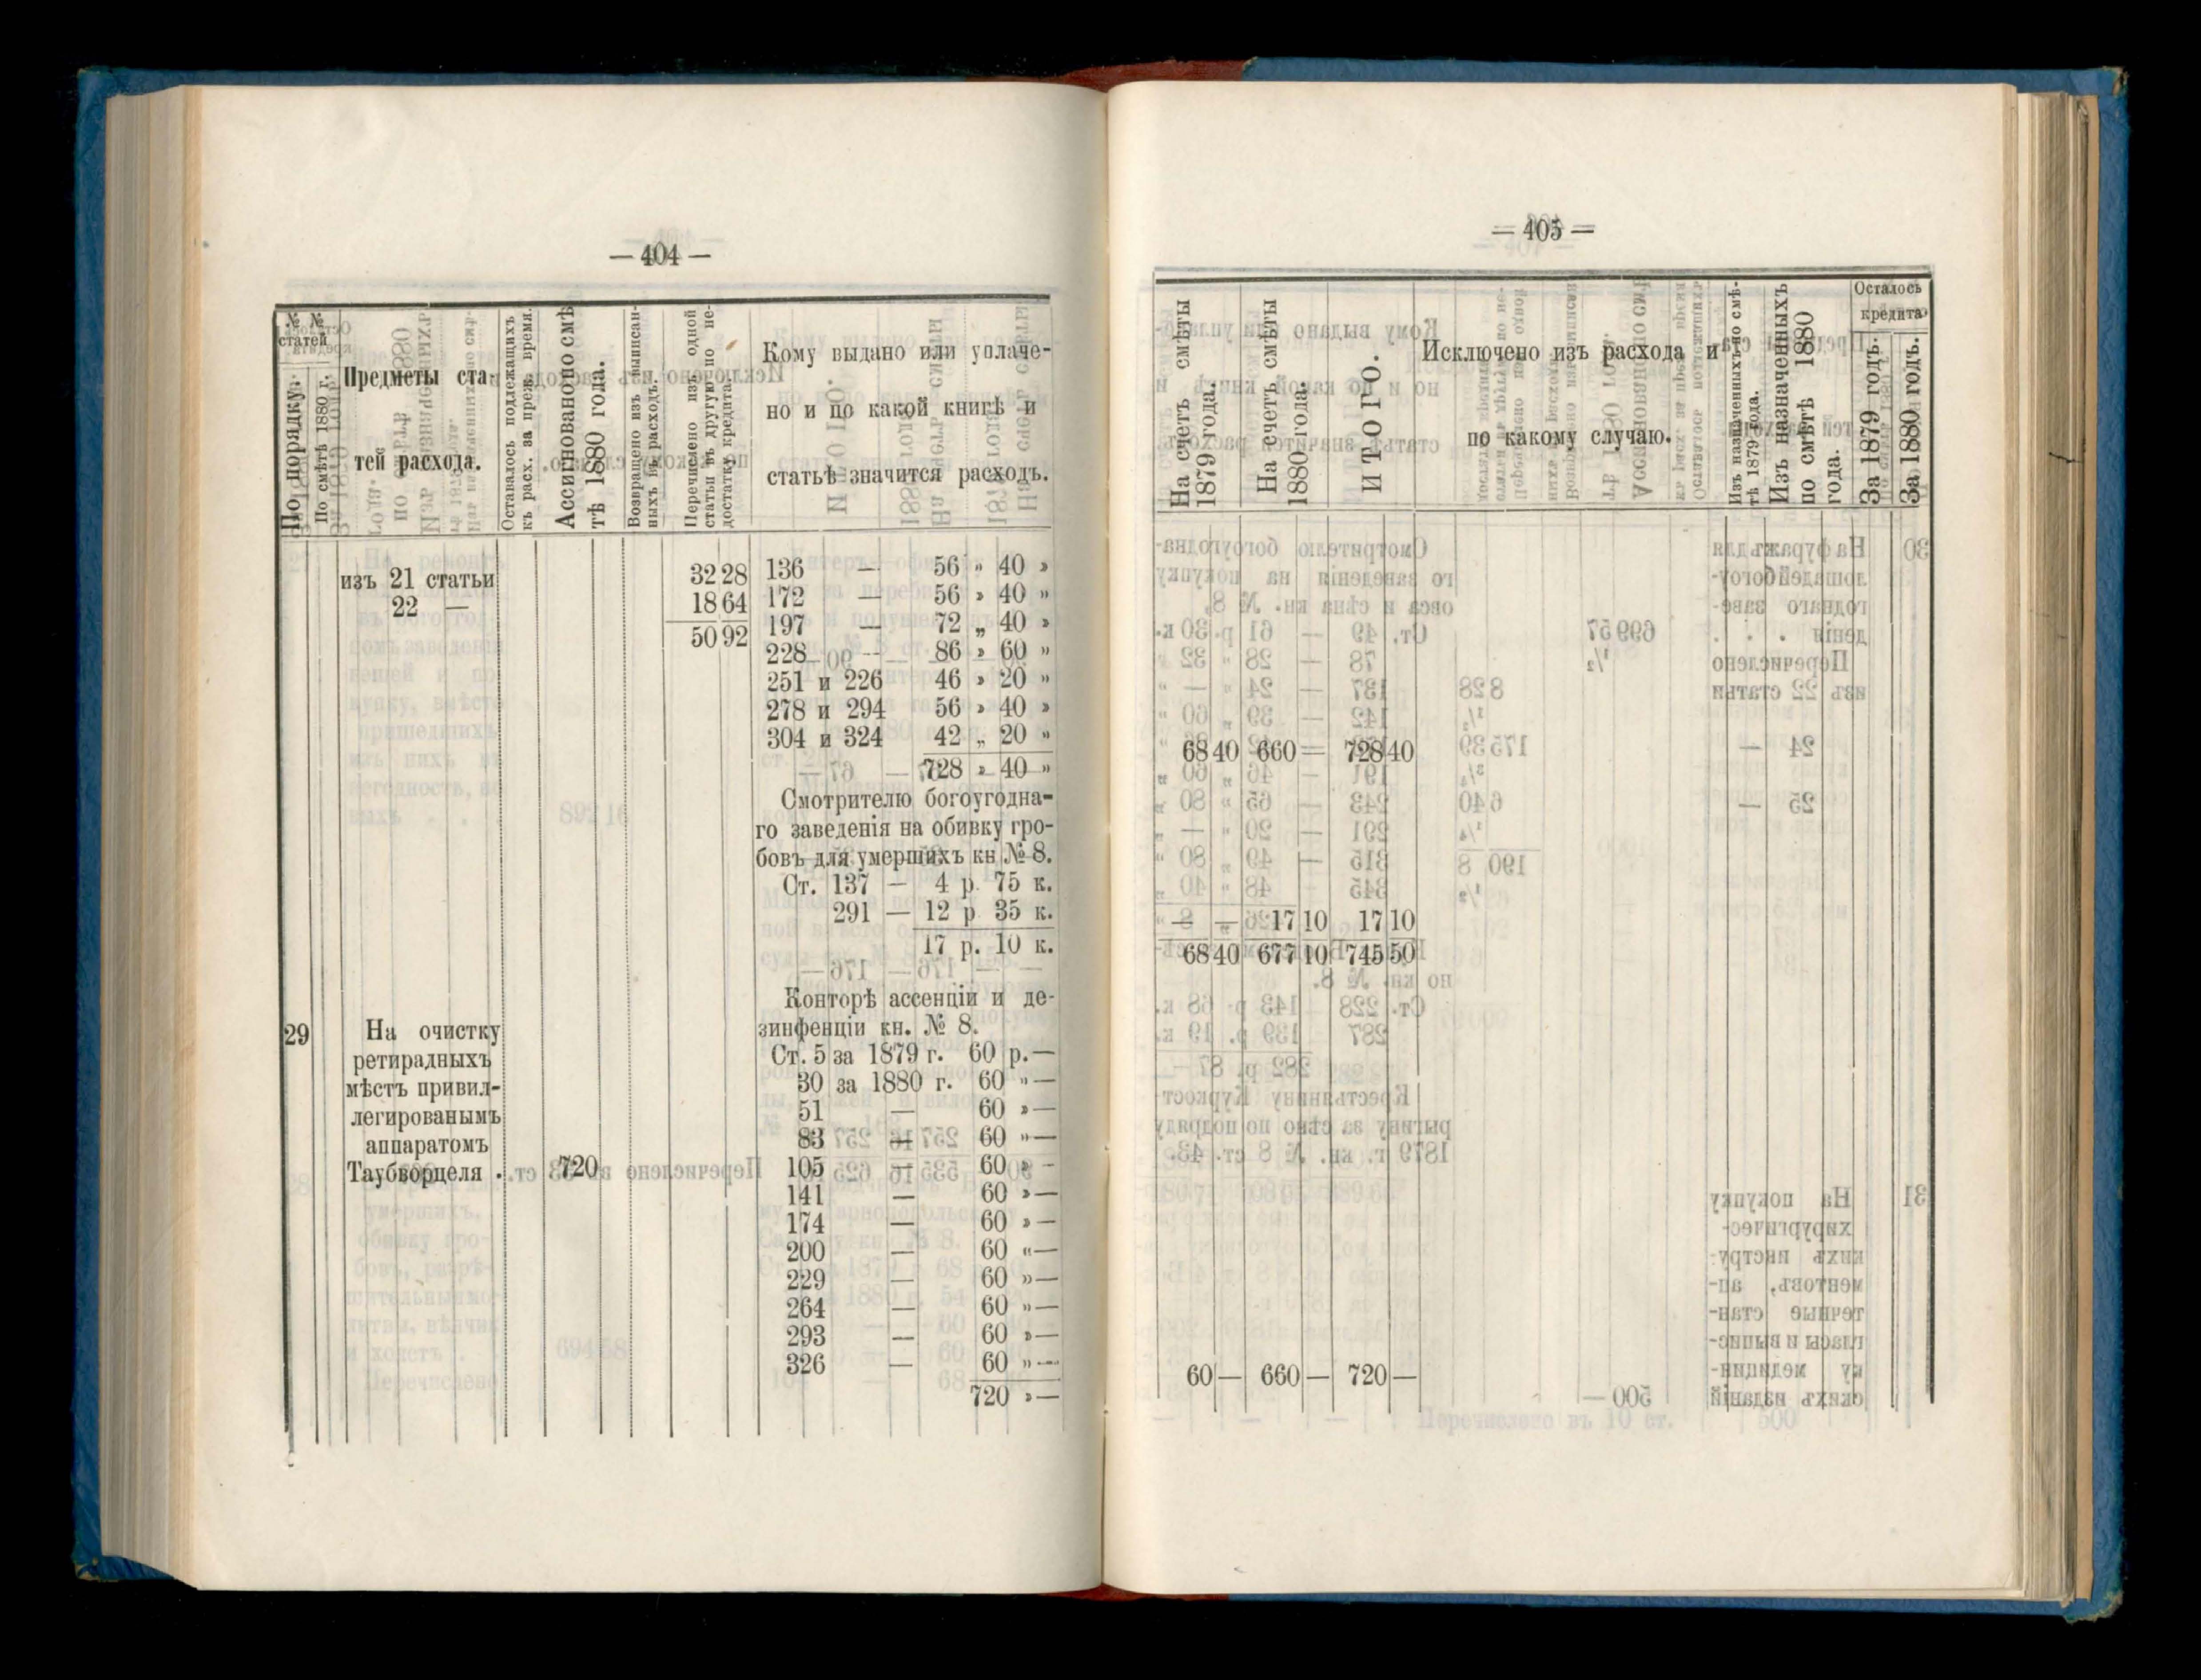 — 404 —
№ №
статей
По порядку.
По смѣтѣ 1880 г.
Предметы ста-
тей расхода.
Оставалось подлежащихъ
къ расх. за преж. время.
Ассигновано по смѣ-
тѣ 1880 года.
Возвращено изъ выписан-
ныхъ въ расходъ.
Перечислено изъ одной
статьи въ другую по не-
достатку кредита.
Кому выдано или уплаче-
но и по какой книгѣ и
статьѣ значится расходъ.
изъ 21 статьи 32 28
22 — 18 64
50 92
136 — 56 „ 40 »
172 — 56 » 40 „
197 — 72 „ 40 »
228 — 86 » 60 „
251 и 226 46 » 20 „
278 и 294 56 » 40 »
304 и 324 42 „ 20 „
728 » 40 „
Смотрителю богоугодна-
го заведенія на обивку гро-
бовъ для умершихъ кн № 8.
Ст. 137 — 4 р. 75 к.
291 — 12 р 35 к.
17 р. 10 к.
29 На очистку
ретирадныхъ
мѣстъ привил-
легированымъ
аппаратомъ
Таубворцеля . 720
Конторѣ ассенціи и де-
зинфенціи кн. № 8.
Ст. 5 за 1879 г. 60 р. —
30 за 1880 г. 60 „ —
51 — 60 » —
83 — 60 „ —
105 — 60 » -
141 — 60 » —
174 — 60 » —
200 — 60 „ —
229 — 60 » —
264 — 60 „ —
293 — 60 » —
326 — 60 „ —
720 » —
— 405 —
На счетъ смѣты
1879 года.
На счетъ смѣты
1880 года.
ИТОГО.
Исключено изъ расхода и
по какому случаю.
Изъ назначенныхъ по смѣ-
тѣ 1879 года.
Изъ назначенныхъ
по смѣтѣ 1880
года.
Осталось
кредита
За 1879 годъ.
За 1880 годъ.
68 40 660 — 728 40
— — 17 10 17 10
68 40 677 10 745 50
60 — 660 — 720 —